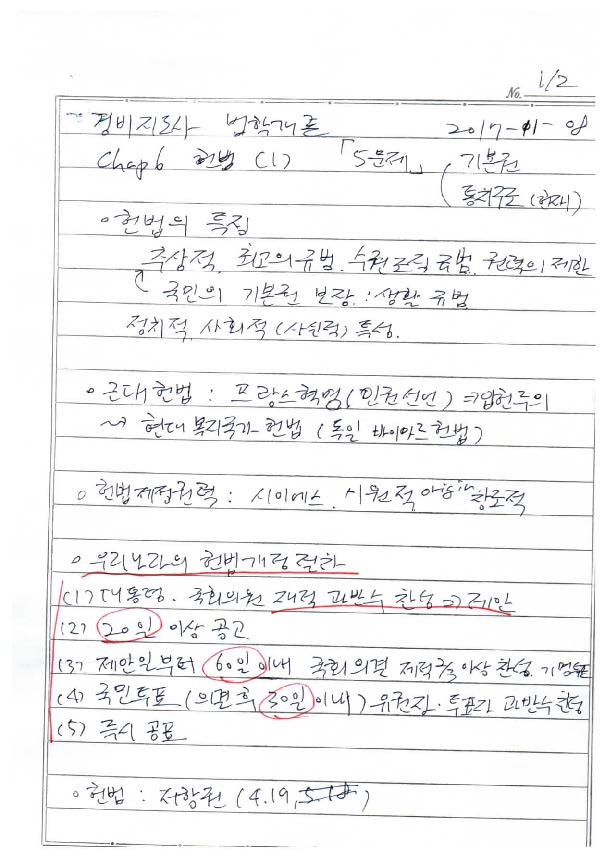 No. 1/2
경비지도사 법학개론 2017-11-08
Chap6 헌법 (1) 「5문제」 기본권
통치구조 (헌재)
○ 헌법의 특징
추상적, 최고의 규범, 수권조직 규범, 권력의 제한
국민의 기본권 보장 : 생활 규범
정치적, 사회적 (사실력) 특성.
○ 근대헌법 : 프랑스혁명 (인권선언) ⇒ 입헌주의
~> 현대 복지국가 헌법 (독일 바이마르 헌법)
○ 헌법제정권력 : 시이에스, 시원적 창조적
○ 우리나라의 헌법개정절차
(1) 대통령, 국회의원 재적 과반수 찬성 ⇒ 제안
(2) 20일 이상 공고
(3) 제안일부터 60일 이내 국회 의결 제적 ⅔ 이상 찬성. 기명투표
(4) 국민투표 (의결후 30일 이내) 유권자·투표자 과반수 찬성
(5) 즉시 공표
○ 헌법 : 저항권 (4.19, 5.18)